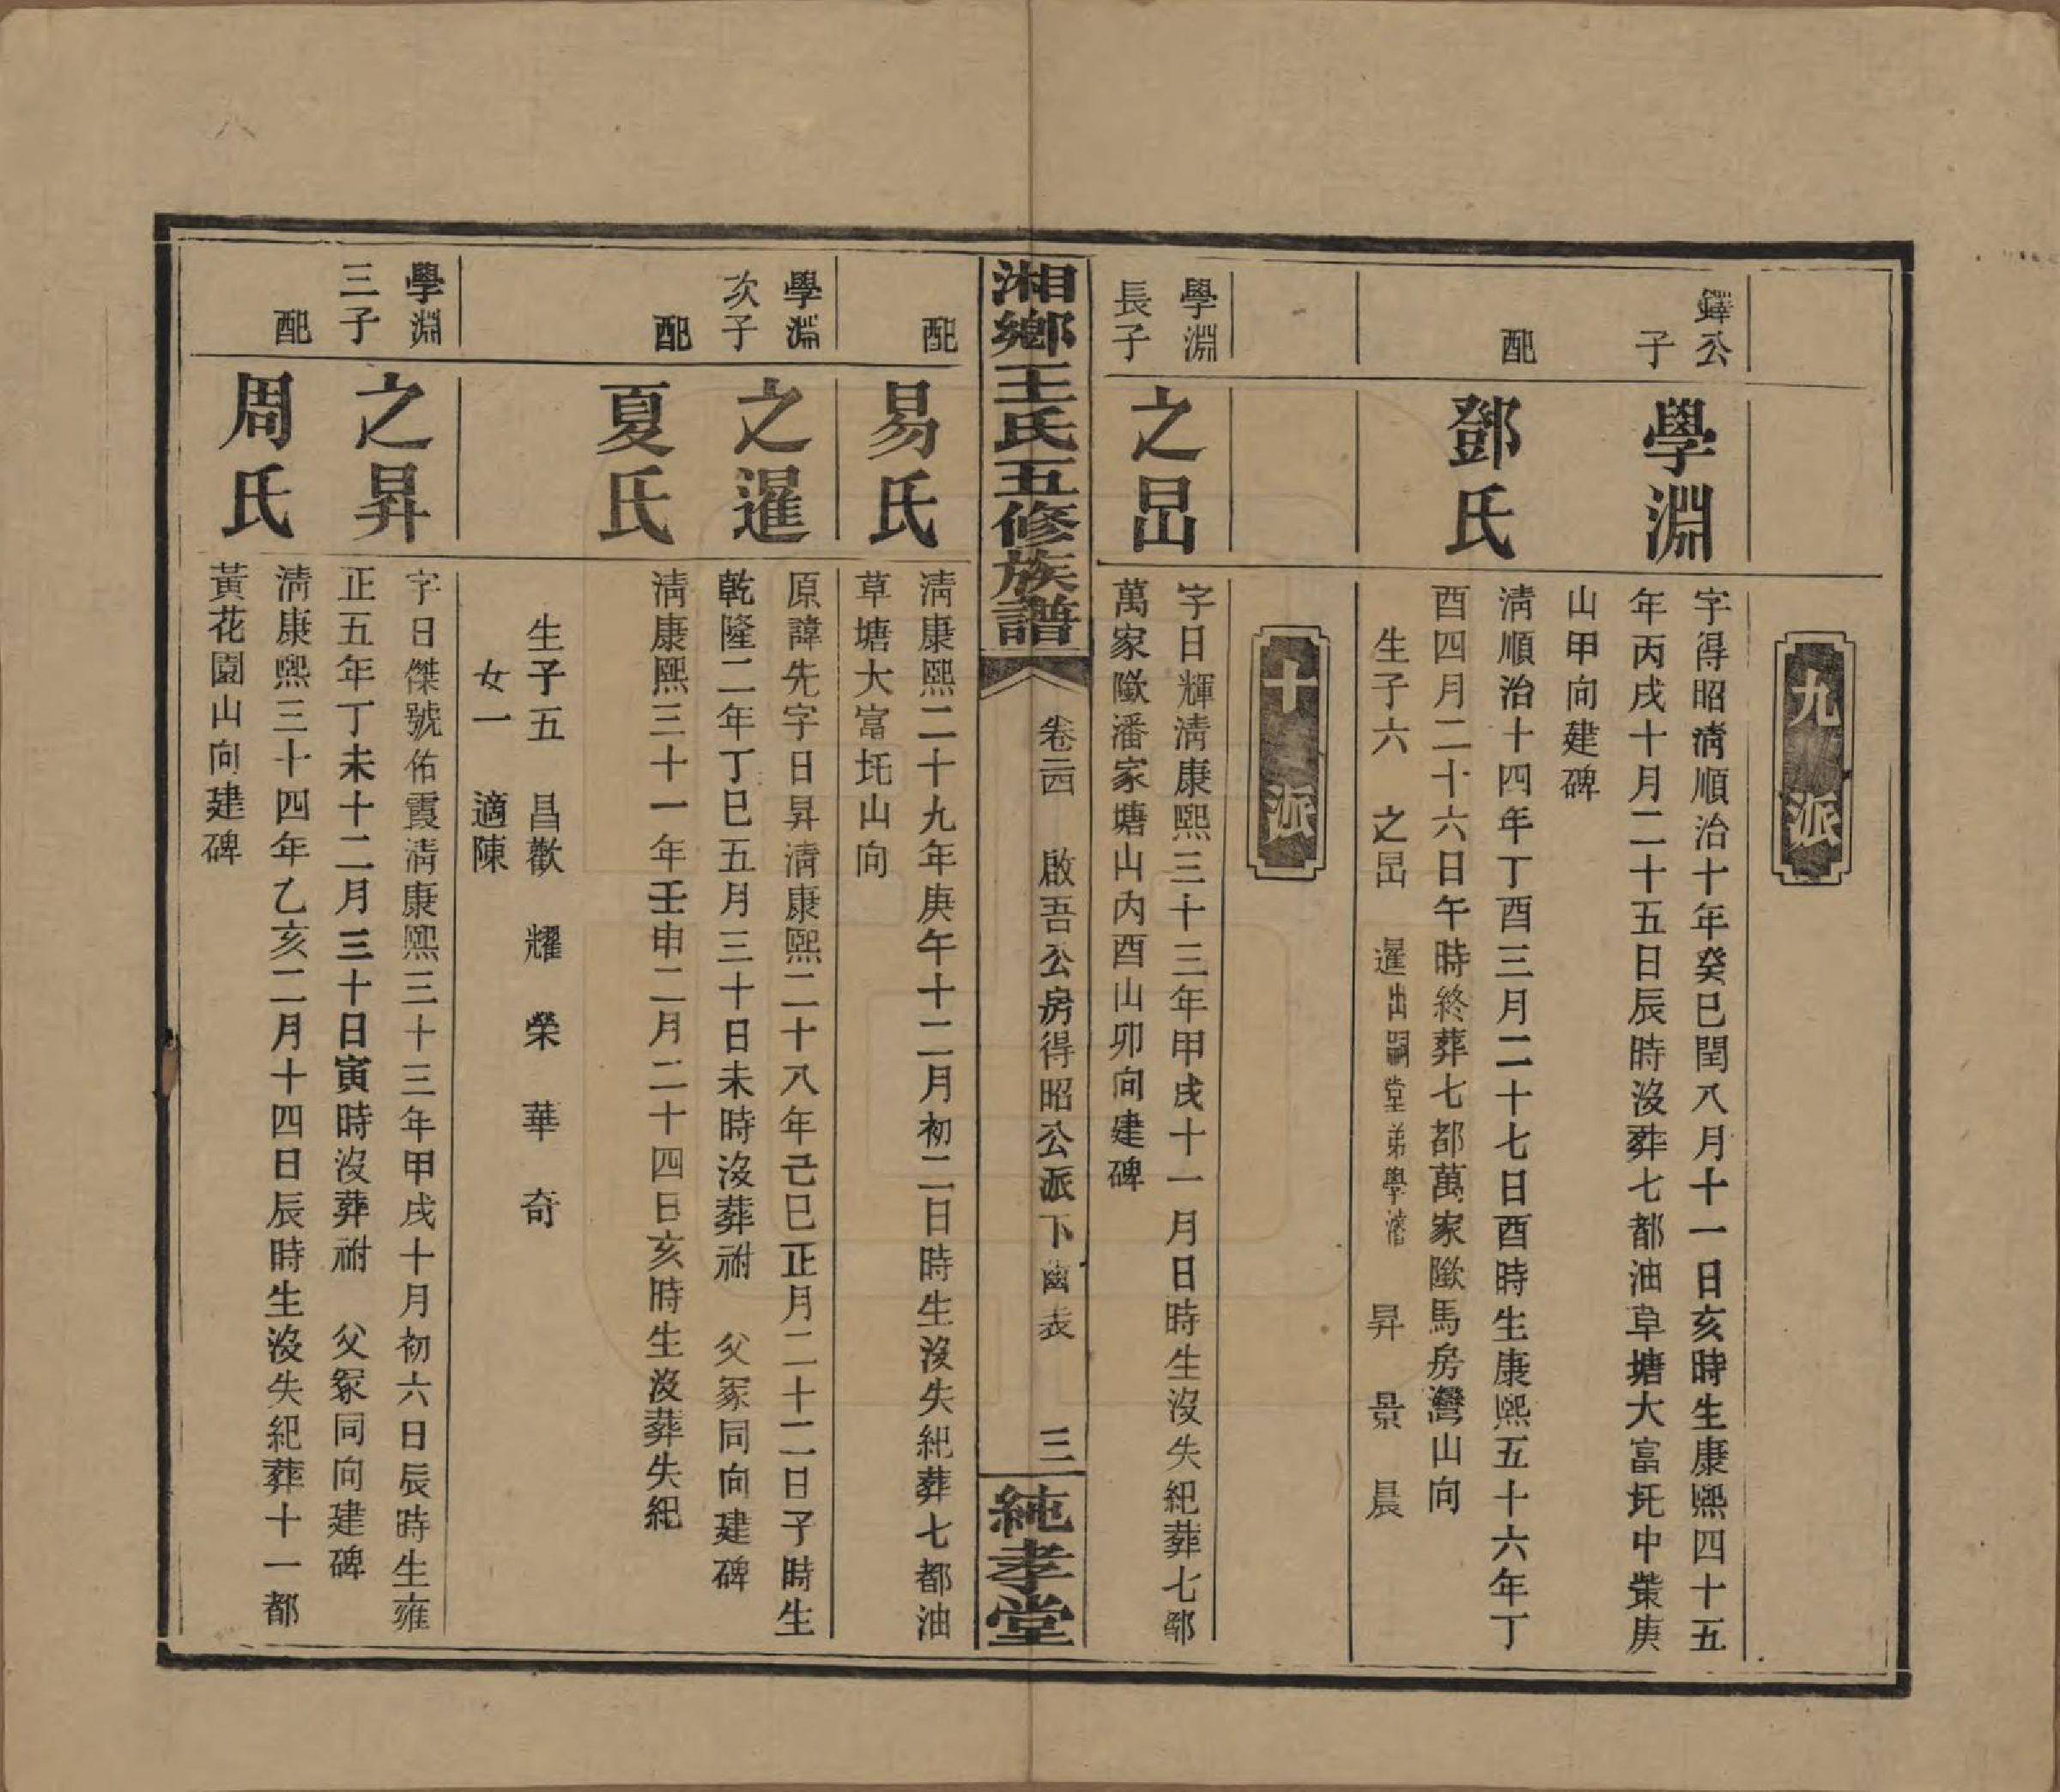 九派
鐸公
子
學淵
字得昭清順治十年癸巳閏八月十一日亥時生康熙四十五
年丙戌十月二十五日辰時沒葬七都油草塘大富圫中塋庚
山甲向建碑
配
鄧氏
清順治十四年丁酉三月二十七日酉時生康熙五十六年丁
酉四月二十六日午時終葬七都萬家隞馬房灣山向
生子六 之昢 暹出嗣堂弟學濬 昇 景 晨
十派
學淵
長子
之昢
字日輝清康熙三十三年甲戌十一月日時生沒失紀葬七都
萬家隞潘家塘山內酉山卯向建碑
湘鄉王氏五修族譜
卷二四 啟吾公房得昭公派下齒表 三
純孝堂
配
易氏
清康熙二十九年庚午十二月初二日時生沒失紀葬七都油
草塘大富圫山向
學淵
次子
之暹
原諱先字日昇清康熙二十八年己巳正月二十二日子時生
乾隆二年丁巳五月三十日未時沒葬祔 父冢同向建碑
配
夏氏
清康熙三十一年壬申二月二十四日亥時生沒葬失紀
生子五 昌歡 耀 榮 華 奇
女一 適陳
學淵
三子
之昇
字日傑號佑霞清康熙三十三年甲戌十月初六日辰時生雍
正五年丁未十二月三十日寅時沒葬祔 父冢同向建碑
配
周氏
清康熙三十四年乙亥二月十四日辰時生沒失紀葬十一都
黃花園山向建碑